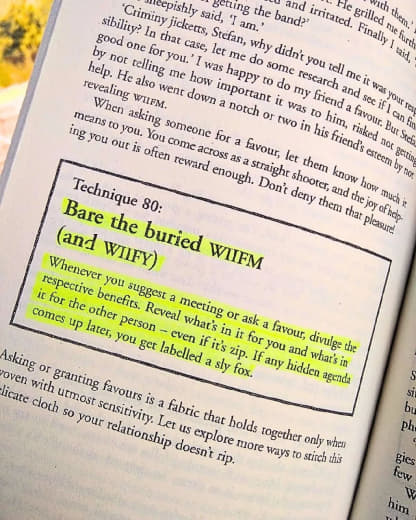 with them,
getting the band?'
and irritated. Finally I said,
sheepishly said, 'I am.'
He grilled me
'Criminy jicketts, Stefan, why didn't you tell me it was your
sibility? In that case, let me do some research and see if I can find
good one for you.' I was happy to do my friend a favour. But Stefan,
by not telling me how important it was to him, risked not getting
help. He also went down a notch or two in his friend's esteem by not
revealing WIIFM.
When asking someone for a favour, let them know how much it
means to you. You come across as a straight shooter, and the joy of help-
ing you out is often reward enough. Don't deny them that pleasure!
Technique 80:
Bare the buried WIIFM
(and WIIFY)
Whenever you suggest a meeting or ask a favour, divulge the
respective benefits. Reveal what's in it for you and what's in
it for the other person – even if it's zip. If any hidden agenda
comes up later, you get labelled a sly fox.
Asking or granting favours is a fabric that holds together only when
woven with utmost sensitivity. Let us explore more ways to stitch this
delicate cloth so your relationship doesn't rip.
gies
few
him